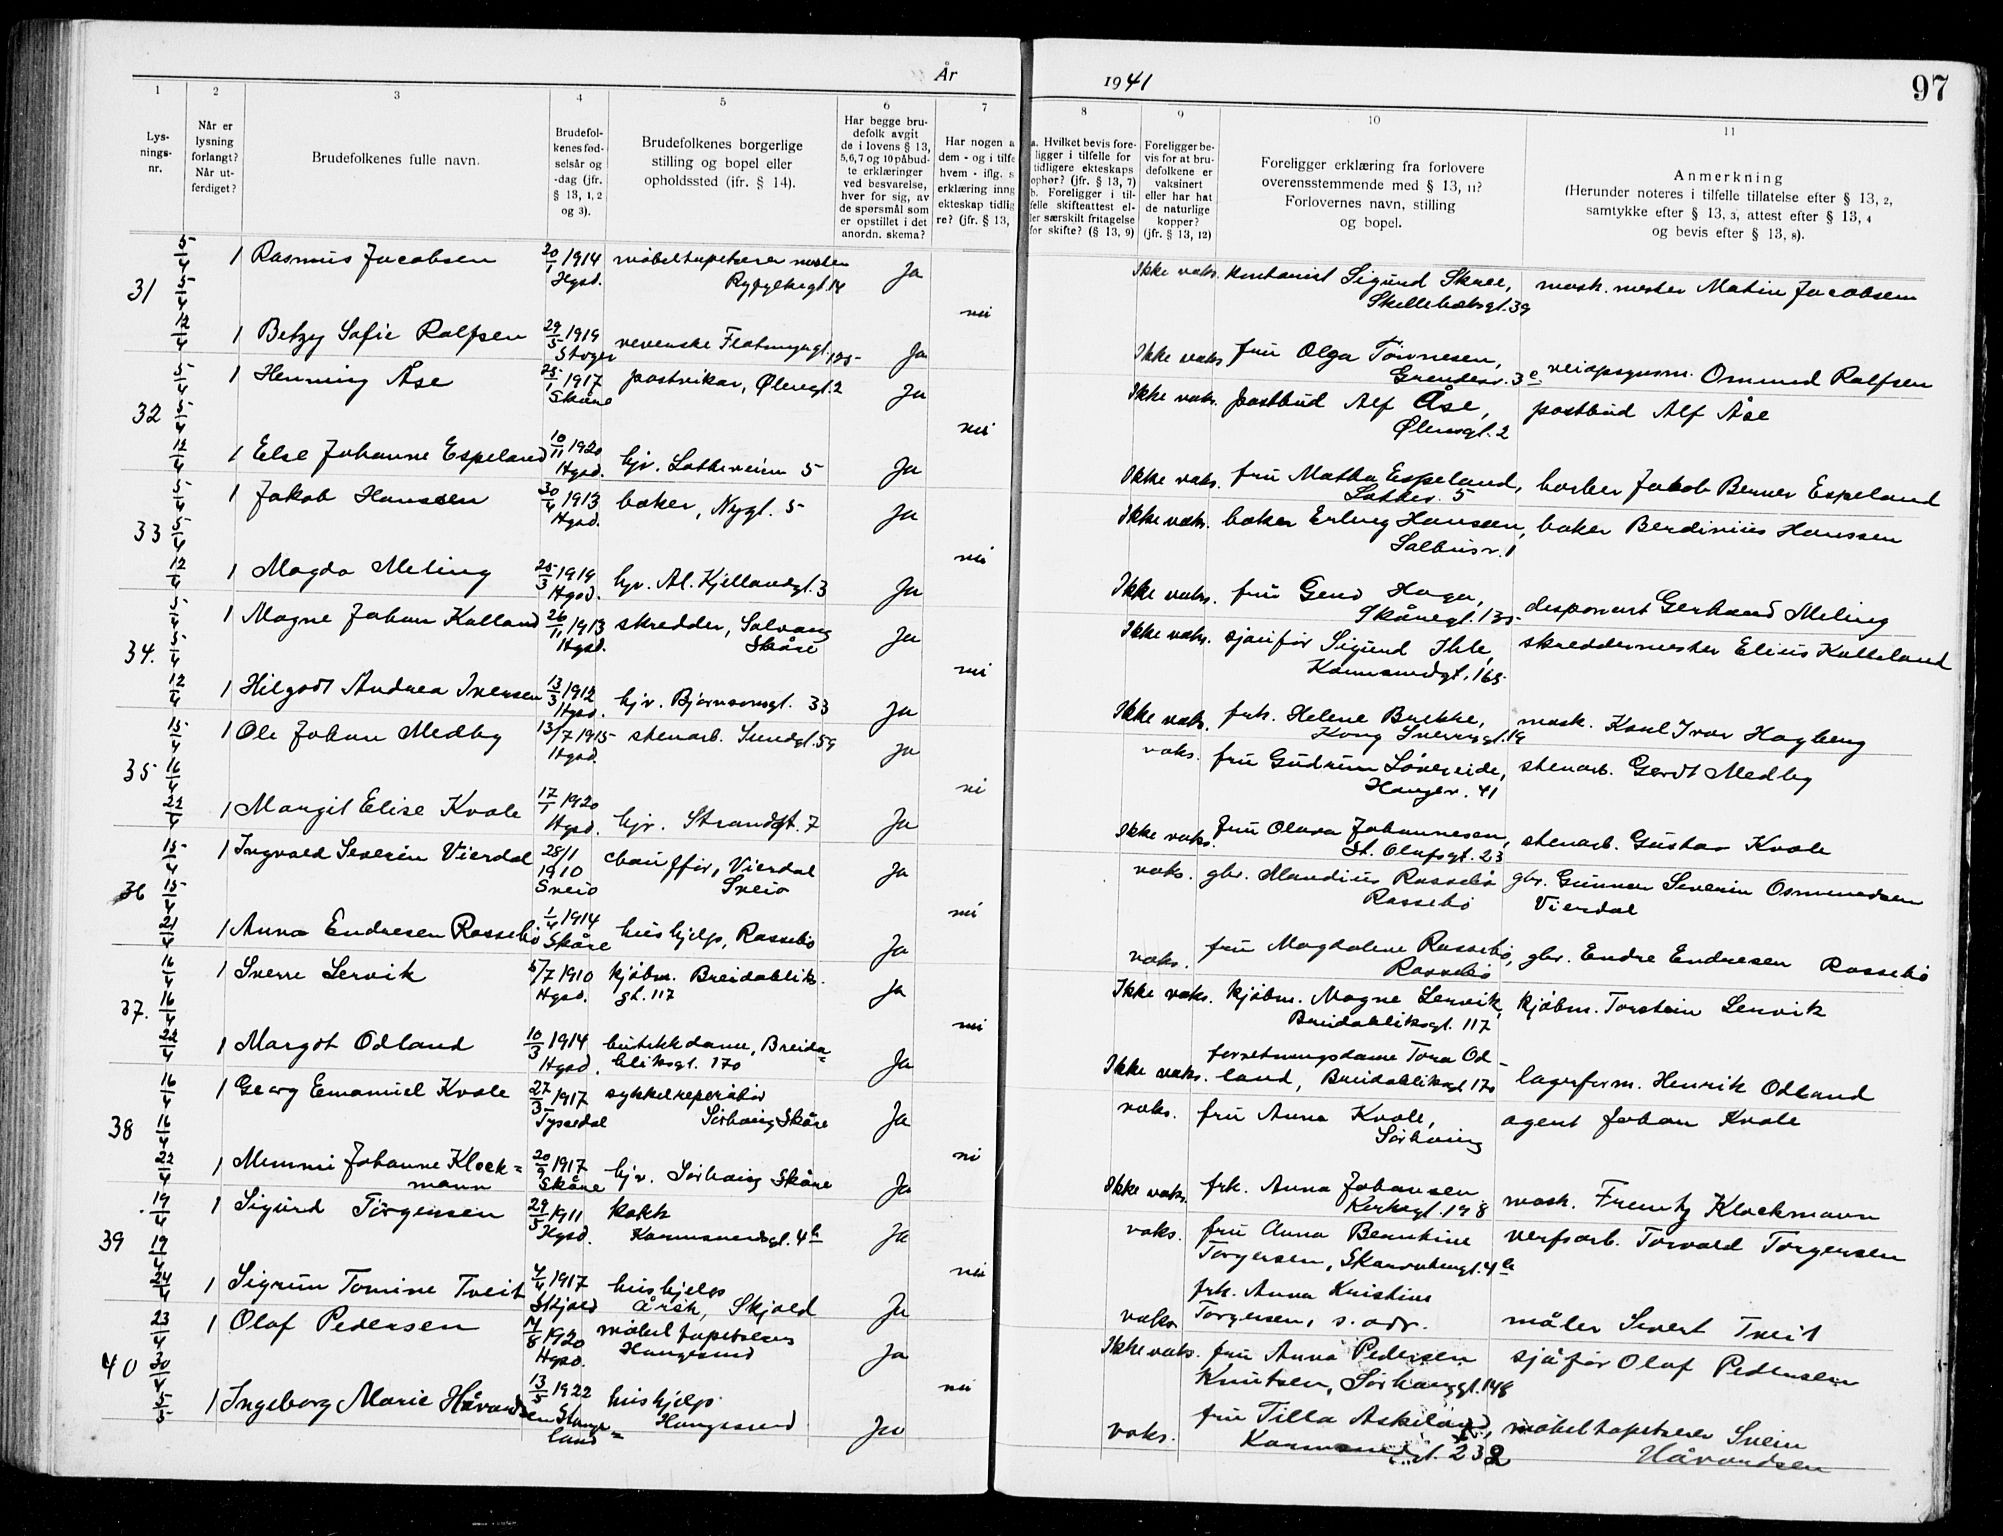 År 1941
97
1 2 3 4 5 6 7 8 9 10 11
Lysningsnr.
Når er lysning forlangt? Når utferdiget?
Brudefolkenes fulle navn.
Brudefolkenes fødselsår og -dag (jfr. § 13, 1, 2 og 3).
Brudefolkenes borgerlige stilling og bopel eller opholdssted (ifr. § 14).
Har begge brudefolk avgit de i lovens § 13, 5,6,7 og 10 påbudte erklæringer ved besvarelse, hver for sig, av de spørsmål som er opstillet i det anordn. skema?
Har nogen a
dem - og i tilfe
hvem - iflg. s
erklæring inng
ekteskap tidlig
re? (jfr. § 13,
a. Hvilket bevis foreligger i tilfelle for tidligere ekteskaps ophør? (jfr. § 13, 7) b. Foreligger i tilfelle skifteattest eller særskilt fritagelse for skifte? (§ 13, 9)
Foreligger bevis for at brudefolkene er vaksinert eller har hat de naturlige kopper? (jfr. § 13, 12)
Foreligger erklæring fra forlovere overensstemmende med § 13, 11? Forlovernes navn, stilling og bopel.
Anmerkning
(Herunder noteres i tilfelle tillatelse efter § 13, 2, samtykke efter § 13, 3, attest efter § 13, 4 og bevis efter § 13, 8).
31 5/4 5/4 12/4
1 Rasmus Jacobsen 20/1 1914 Hgsd. møbeltapetserer mester Ryfylkegt. 14 Ja
Ikke vaks. kontorist Sigurd Skree, Skillebeksgt. 39 mask. mester Matin Jacobsen
nei
1 Betzy Sofie Rolfsen 29/5 1919 Stvger Flotmyrgt. 125 Ja
Ikke vaks fru Olga Tønnesen, Osmund Rolfsen
32 5/4 5/4 12/4
1 Henning Åse 25/1 1917 Skåre postvikar, Ølensgt. 2 Ja
Ikke vaks. postbud Alf Åse, Ølensgt. 2 postbud Alf Åse
nei
1 Else Johanne Espeland 10/11 1920 Hgsd. hjv. Lotheveien 5 Ja
Ikke vaks. fru Martha Espeland, Lothev. 5 barber Jakob Berner Espeland
33 5/4 5/4 12/4
1 Jakob Hanssen 30/4 1913 Hgsd. baker, Nygt. 5 Ja
Ikke vaks. baker Erling Hanssen, Salhusv. 1 baker Berdinius Hanssen
nei
1 Magda Meling 25/3 1919 Hgsd. hjv. Al. Kjellandgt. 3 Ja
Ikke vaks. fru Haga, Skåregt. 135 disponent Gerhard Meling
34. 5/4 5/4 12/4
1 Magne Johan Kalland 26/11 1913 Hgsd. skredder, Solvang Skåre Ja
Ikke vaks. sjåufør Sigurd Ihle, Karmsundgt. 165 skreddermester Elius Kalleland
nei
1 Hilgodt Andrea Iversen 13/3 1912 Hgsd. hjv. Bjørnsonsgt. 33 Ja
Ikke vaks. frk. Helene Brekke, Kong Sverresgt. 19 mask. Karl Ivar Hagberg
35 15/4 16/4 22/4
1 Ole Johan Medby 13/7 1915 Hgsd. stenarb. Sundgt. 59 Ja
vaks. fru Gudrun Løvereide, Haugev. 41 stenarb. Gerdt Medby
nei
1 Margit Elise Kvale 17/1 1920 Hgsd. hjv. Strandgt. 7 Ja
Ikke vaks. fru Olava Johannesen, St. Olafsgt. 23 stenarb. Gustav Kvale
36 15/4 15/4 21/4
1 Ingvald Severin Vierdal 28/1 1910 Sveio chauffør, Vierdal Sveio Ja
vaks. gbr. Mandius Rossebø Rossebø gbr. Gunnar Severin Osmundsen Vierdal
nei
1 Anna Endresen Rossebø 1/4 1914 Skåre hushjelp, Rossebø Ja
vaks. fru Magdalene Rossebø, Rossebø gbr. Endre Endresen Rossebø
37. 16/4 16/4 22/4
1 Sverre Lervik 5/7 1910 Hgsd. kjøbm. Breidabliksgt. 117 Ja
Ikke vaks. kjøbm. Magne Lervik, Breidabliksgt. 117 kjøbm. Torstein Lervik
nei
1 Margot Odland 10/3 1914 Hgsd. butikkdame, Breidabliksgt. 170 Ja
Ikke vaks. forretningsdame Tora Odland, Breidabliksgt 170 lagerform. Henrik Odland
38 16/4 16/4 22/4
1 Georg Emanuel Kvale 27/3 1917 Tyssedal sykkelreperatør Sørhaug Skåre Ja
vaks. fru Anna Kvale, Sørhaug agent Johan Kvale
nei
1 Memmi Johanne Klock=mann 20/9 1917 Skåre hjv. Sørhaug Skåre Ja
Ikke vaks. frk. Anna Johansen Kirkegt. 198 mask. Frentz Klockmann
39 19/4 19/4 24/4
1 Sigurd Torgersen 29/5 1911 Hgsd. kokk Karmsundsgt. 4b Ja
vaks. fru Anna Berntine Torgersen, 4b verfsarb. Torvald Torgersen
nei
1 Sigrun Tomine Tveit 4/4 1917 Skjold hushjelp Årek, Skjold Ja
vaks frk. Anna Kristine Torgersen, s. adr. måler Sivert Tveit
40 23/4 30/4 5/5
1 Olaf Pedersen 14/8 1920 Hgsd. møbeltapetserer Haugesund Ja
Ikke vaks. fru Anna Pedersen Knutsen, Sørhauggt. 148 sjåfør Olaf Pedersen
nei
1 Ingeborg Marie Håvardsen 13/5 1922 Stangeland hushjelp Haugesund Ja
vaks. fru Tilla Askeland, Karmsundgt. 232 møbeltapetserer Svein Håvardsen